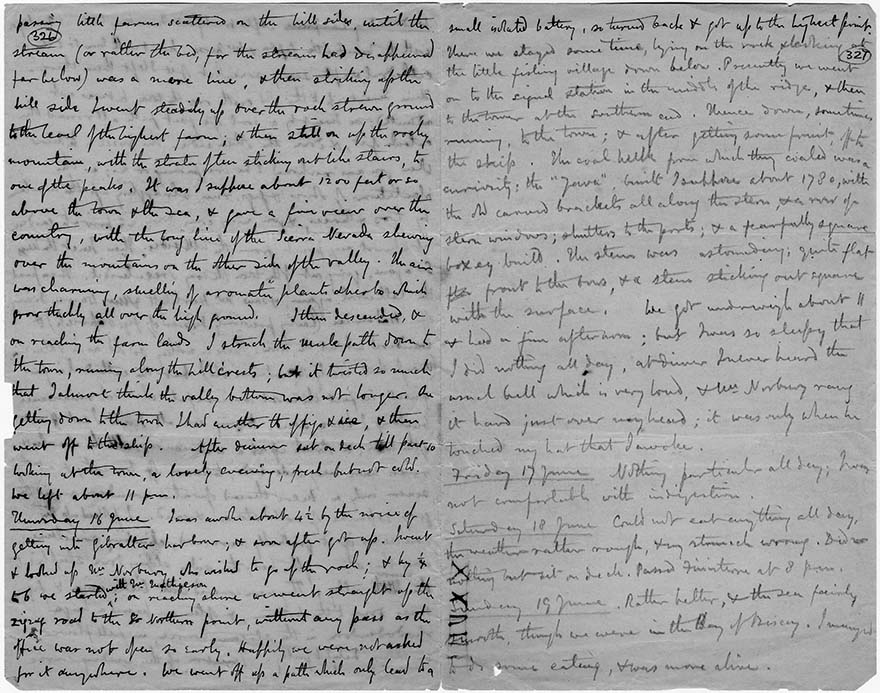 passing little farms scattered on the hill sides, until the
(326)
stream (or rather the bed, for the stream had disappeared
far below) was a mere line, & then striking up the
hill side I went steadily up over the rock strewn ground
to the level of the highest farm; & then still on up the rocky
mountain, with the strata often sticking out like stairs, to
one of the peaks. It was I suppose about 1200 feet or so
above the town & the sea, & gave a fine view over the
country, with the long line of the Sierra Nevada shewing
over the mountains on the other side of the valley. The air
was charming, smelling of aromatic plants & herbs which
grow thickly all over the high ground. I then descended, &
on reaching the farm lands I struck the mule path down to
the town, running along the hill crests; but it twisted so much
that I almost think the valley bottom was not longer. On
getting down to the town I had another th of figs & ice, & then
went off to the ship. After dinner sat on deck till past 10
looking at the town, a lovely evening, fresh but not cold.
We left about 11 p.m.
Thursday 16 June I was awoke about 4½ by the noise of
getting into Gibraltar harbour; & soon after got up. I went
& looked up Mr Norbury, who wished to go up the rock; & by ¼
to 6 we started with Mr Mathieson; on reaching shore we went straight up the
zigzag road to the So Northern point, without any pass as the
office was not open so early. Happily we were not asked
for it anywhere. We went off up a path which only lead to a
small isolated battery, so turned back & got up to the highest point.
There we stayed some time, lying on the rock & looking at
(327)
the little fishing village down below. Presently we went
on to the signal station in the middle of the ridge, & then
to the tower at the southern end. Thence down, sometimes
running, to the town; & after getting some fruit, off to
the ship. The coal hulk from which they coaled was a
curiosity; the "Java", built I suppose about 1780, with
the old carved brackets all along the stern & a row of
stern windows; shutters to the ports; & a fearfully square
boxey build. The stern was astounding; quite flat
front to the bows, & a stem sticking out square
with the surface. We got underweigh about 11
& had a fine afternoon; but I was so sleepy that
I did nothing all day, at dinner I never heard the
usual bell which is very loud, & Mr Norbury rang
it hard just over my head; it was only when he
touched my hat that I awoke.
Friday 17 June Nothing particular all day; I was
not comfortable with indigestion.
Saturday 18 June Could not eat anything all day,
the weather rather rough, & my stomach wrong. Did
nothing but sit on deck. Passed Finisterre at 8 p.m.
Sunday 19 June. Rather better, & the sea fairly
smooth, though we were in the Bay of Biscay. I managed
to do some eating, & was more alive.